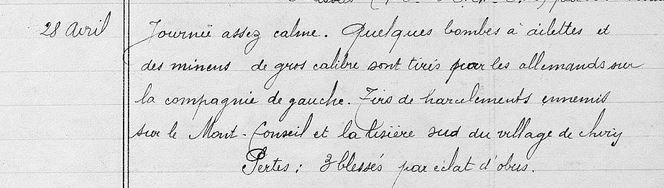 28 Avril
Journée assez calme. Quelques bombes à ailettes et
des minens de gros calibre sont tirés par les allemands sur
la compagnie de gauche. Tirs de harcelements ennemis
sur le Mont-Conseil et la lisière sud du village de Chiry
Pertes: 3 blessés par éclat d'obus.